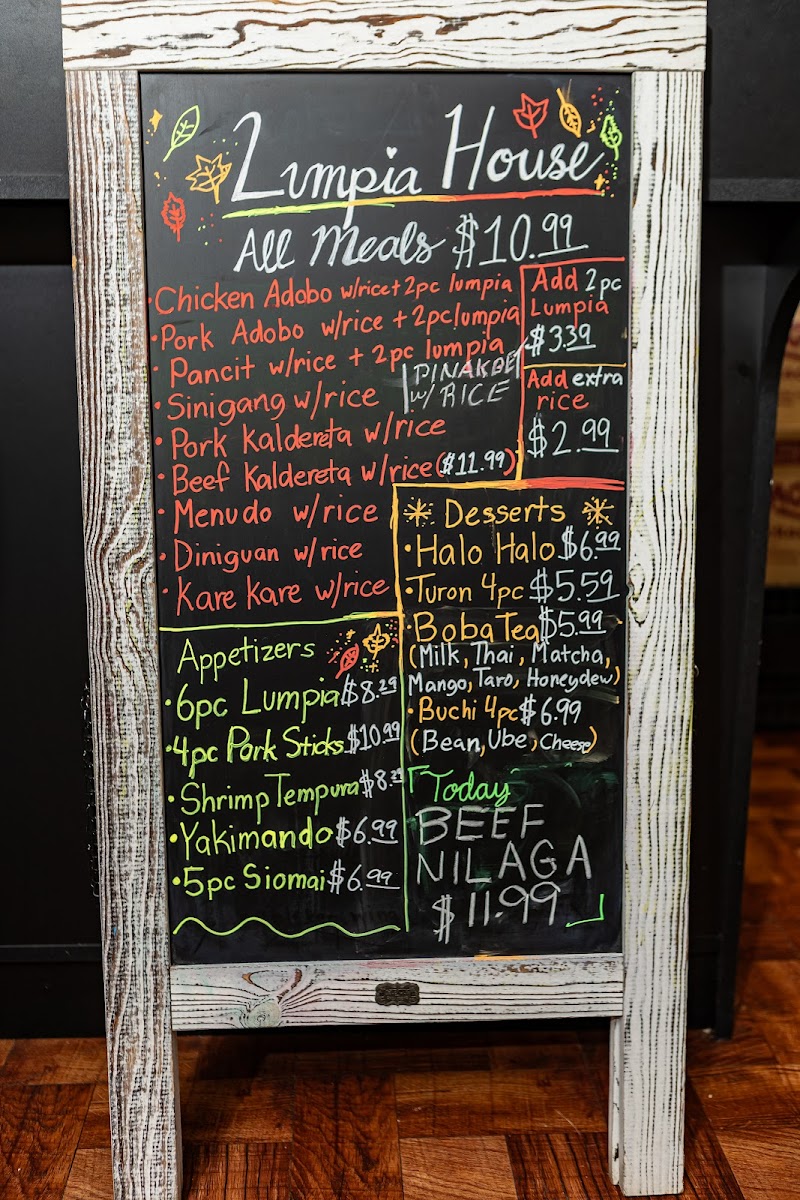 Lumpia House
All Meals $10.99
• Chicken Adobo w/rice + 2pc lumpia
• Pork Adobo w/rice + 2pc lumpia
• Pancit w/rice + 2pc lumpia
• Sinigang w/rice
PINAKBET
w/ RICE
• Pork Kaldereta w/rice
• Beef Kaldereta w/rice ($11.99)
• Menudo w/rice
• Diniguan w/rice
• Kare Kare w/rice
Add 2pc
Lumpia
$3.39
Add extra
rice
$2.99
Appetizers
• 6pc Lumpia $8.29
• 4pc Pork Sticks $10.99
• Shrimp Tempura $8.29
• Yakimando $6.99
• 5pc Siomai $6.99
Desserts
• Halo Halo $6.99
• Turon 4pc $5.59
• Boba Tea $5.99
(Milk, Thai, Matcha,
Mango, Taro, Honeydew)
• Buchi 4pc $6.99
(Bean, Ube, Cheese)
Today
BEEF
NILAGA
$11.99